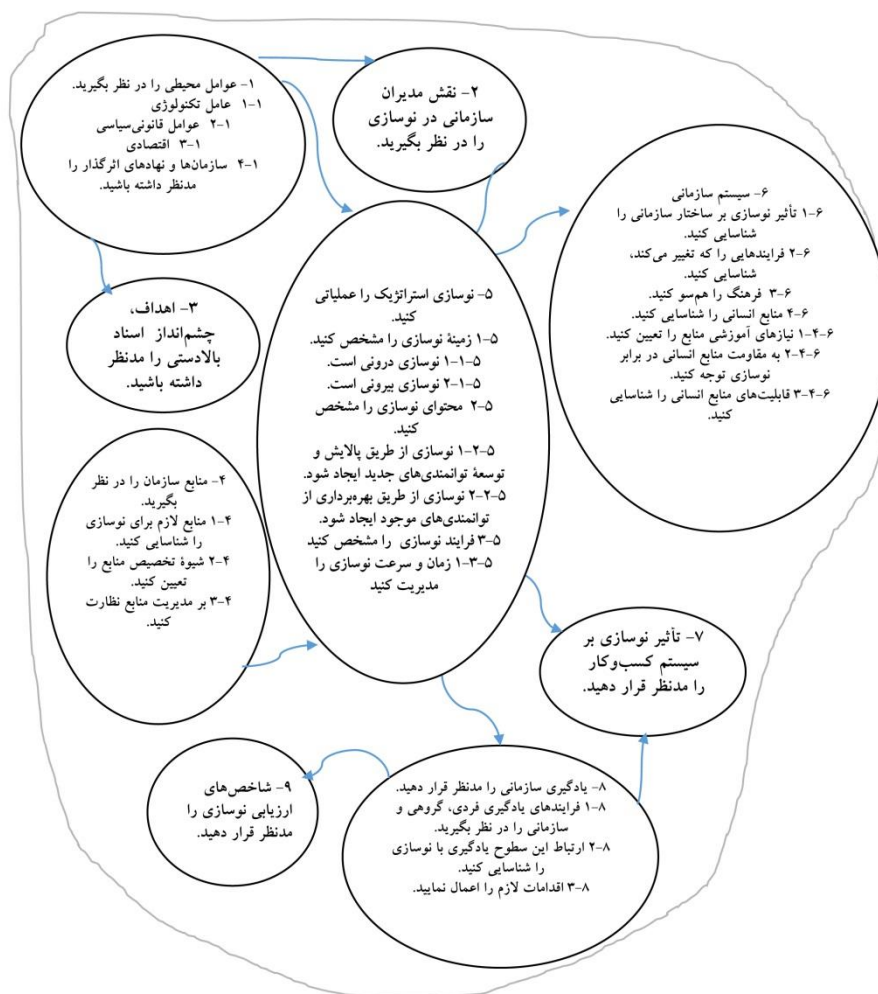 ۱- عوامل محیطی را در نظر بگیرید.
۱-۱ عامل تکنولوژی
۲-۱ عوامل قانونی‌سیاسی
۳-۱ اقتصادی
۴-۱ سازمان‌ها و نهادهای اثرگذار را
مدنظر داشته باشید.
۲- نقش مدیران
سازمانی در نوسازی
را در نظر بگیرید.
۳- اهداف،
چشم‌انداز اسناد
بالادستی را مدنظر
داشته باشید.
۴- منابع سازمان را در نظر
بگیرید.
۱-۴ منابع لازم برای نوسازی
را شناسایی کنید.
۲-۴ شیوۀ تخصیص منابع را
تعیین کنید.
۳-۴ بر مدیریت منابع نظارت
کنید.
۵- نوسازی استراتژیک را عملیاتی
کنید.
۱-۵ زمینۀ نوسازی را مشخص کنید.
۱-۱-۵ نوسازی درونی است.
۲-۱-۵ نوسازی بیرونی است.
۲-۵ محتوای نوسازی را مشخص
کنید.
۱-۲-۵ نوسازی از طریق پالایش و
توسعۀ توانمندی‌های جدید ایجاد شود.
۲-۲-۵ نوسازی از طریق بهره‌برداری از
توانمندی‌های موجود ایجاد شود.
۳-۵ فرایند نوسازی را مشخص کنید
۱-۳-۵ زمان و سرعت نوسازی را
مدیریت کنید
۶- سیستم سازمانی
۱-۶ تأثیر نوسازی بر ساختار سازمانی را
شناسایی کنید.
۲-۶ فرایندهایی را که تغییر می‌کند،
شناسایی کنید.
۳-۶ فرهنگ را هم‌سو کنید.
۴-۶ منابع انسانی را شناسایی کنید.
۱-۴-۶ نیازهای آموزشی منابع را تعیین کنید.
۲-۴-۶ به مقاومت منابع انسانی در برابر
نوسازی توجه کنید.
۳-۴-۶ قابلیت‌های منابع انسانی را شناسایی
کنید.
۷- تأثیر نوسازی بر
سیستم کسب‌وکار
را مدنظر قرار دهید.
۸- یادگیری سازمانی را مدنظر قرار دهید.
۱-۸ فرایندهای یادگیری فردی، گروهی و
سازمانی را در نظر بگیرید.
۲-۸ ارتباط این سطوح یادگیری با نوسازی
را شناسایی کنید.
۳-۸ اقدامات لازم را اعمال نمایید.
۹- شاخص‌های
ارزیابی نوسازی را
مدنظر قرار دهید.